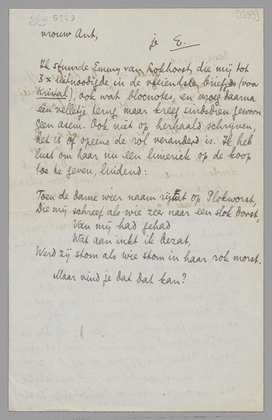 [1285]
vrouw Ant,
je E.
Ik stuurde Emmy van Lokhorst, die mij tot
3 x uitnoodigde in de vriendelste briefjes (voor
Kristal), ook wat blocnotes, en vroeg daarna
een velletje terug, maar kreeg sindsdien gewoon
geen asem. Ook niet op herhaald schrijven,
het is of opeens de rol veranderd is. Ik heb
lust om haar nu een limerick op de koop
toe te geven, luidend:
Toen de dame weer naam op Plokworst,
Die mij schreef als wie zéér naar een slok dorst,
Van mij had gehad
Wat aan inkt ik bezat,
Werd zij stom als wie stom in haar rok morst.
Maar vind je dat dat kan?